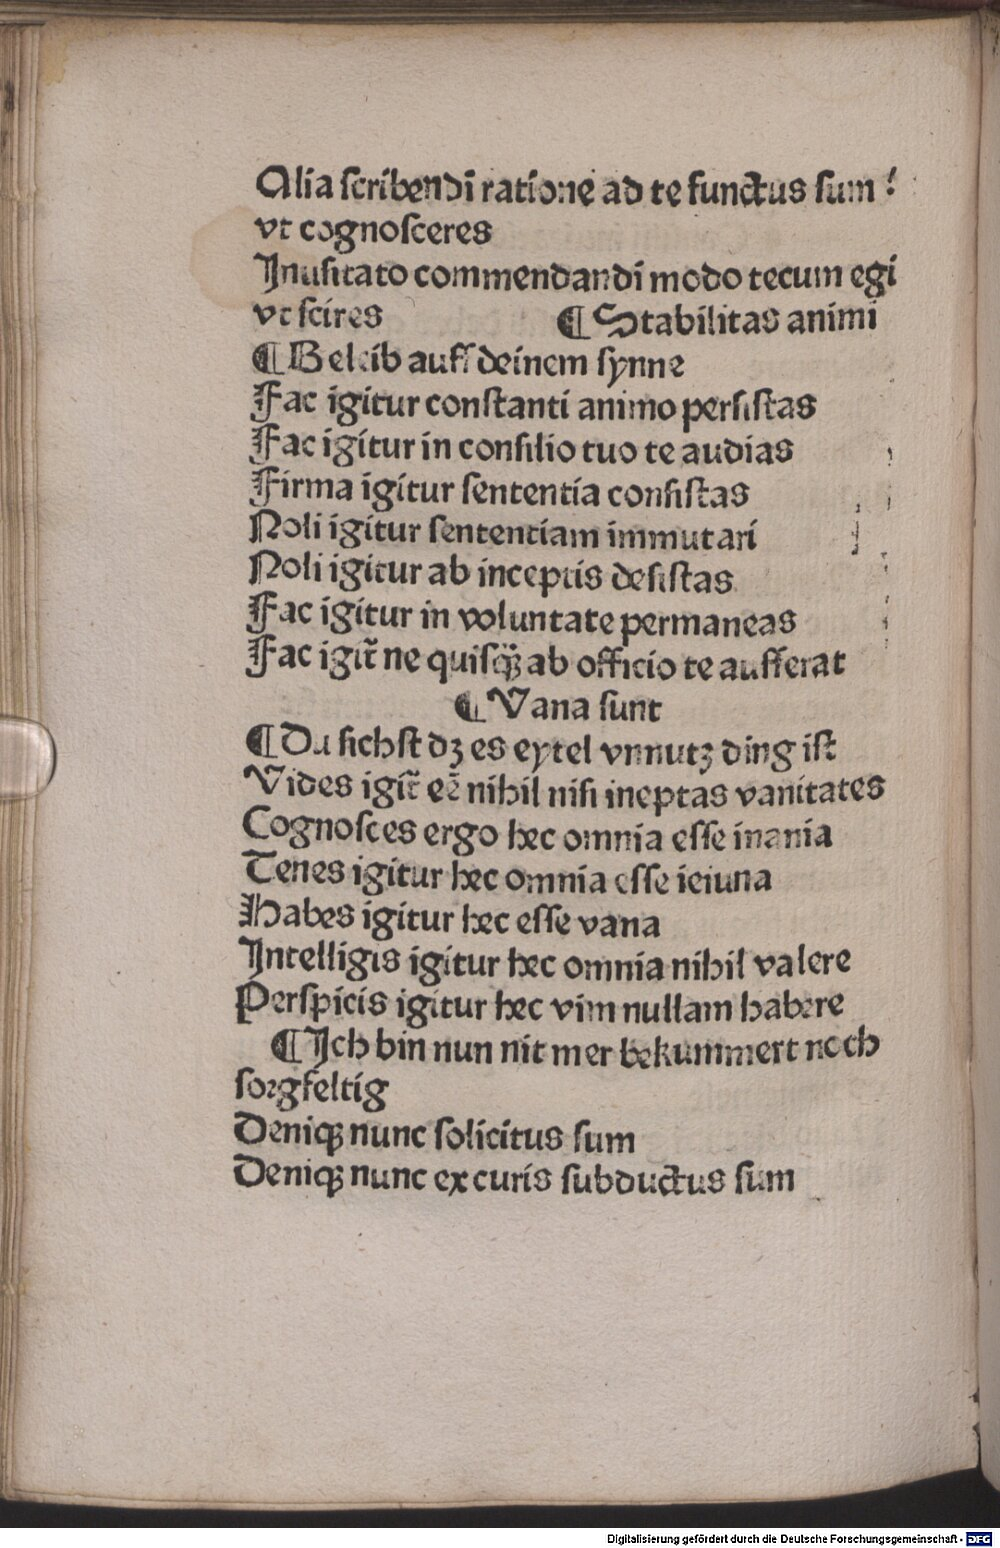 Alia scribendi ratione ad te functus sum :
vt cognosceres
Inusitato commendandi modo tecum egi
vt scires ¶ Stabilitas animi
¶ Beleib auff deinem synne
Fac igitur constanti animo persistas
Fac igitur in consilio tuo te audias
Firma igitur sententia consistas
Noli igitur sententiam immutari
Noli igitur ab inceptis desistas
Fac igitur in voluntate permaneas
Fac igit̃ ne quisꝙ̃ ab officio te aufferat
¶ Vana sunt
¶ Du sichst dꝫ es eytel vnnutꝫ ding ist
Vides igit̃ eẽ nihil nisi ineptas vanitates
Cognosces ergo hec omnia esse inania
Tenes igitur hec omnia esse ieiuna
Habes igitur hec esse vana
Intelligis igitur hec omnia nihil valere
Perspicis igitur hec vim nullam habere
¶ Ich bin nun nit mer bekummert noch
sorgfeltig
Deniqꝫ nunc solicitus sum
Deniqꝫ nunc ex curis subductus sum
Digitalisierung gefördert durch die Deutsche Forschungsgemeinschaft - DFG